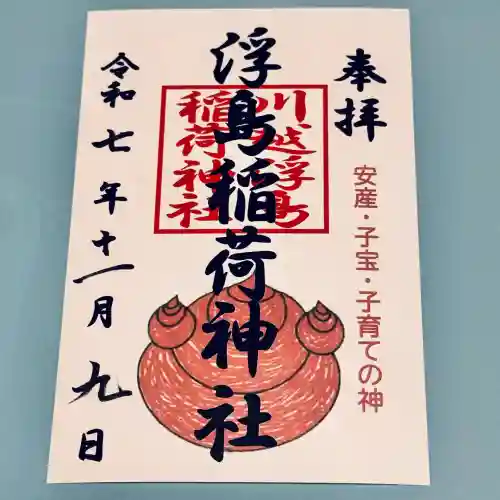 奉拝
安産・子宝・子育ての神
浮島稲荷神社
川越浮島
稲荷神社
令和七年十一月九日